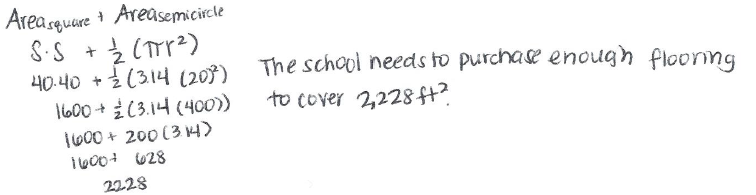 Area square + Area semicircle
S·S + 1/2 (πr²)
40·40 + 1/2 (3.14 (20)²)
1600 + 1/2 (3.14 (400))
1600 + 200 (3.14)
1600 + 628
2228
The school needs to purchase enough flooring
to cover 2,228 ft².